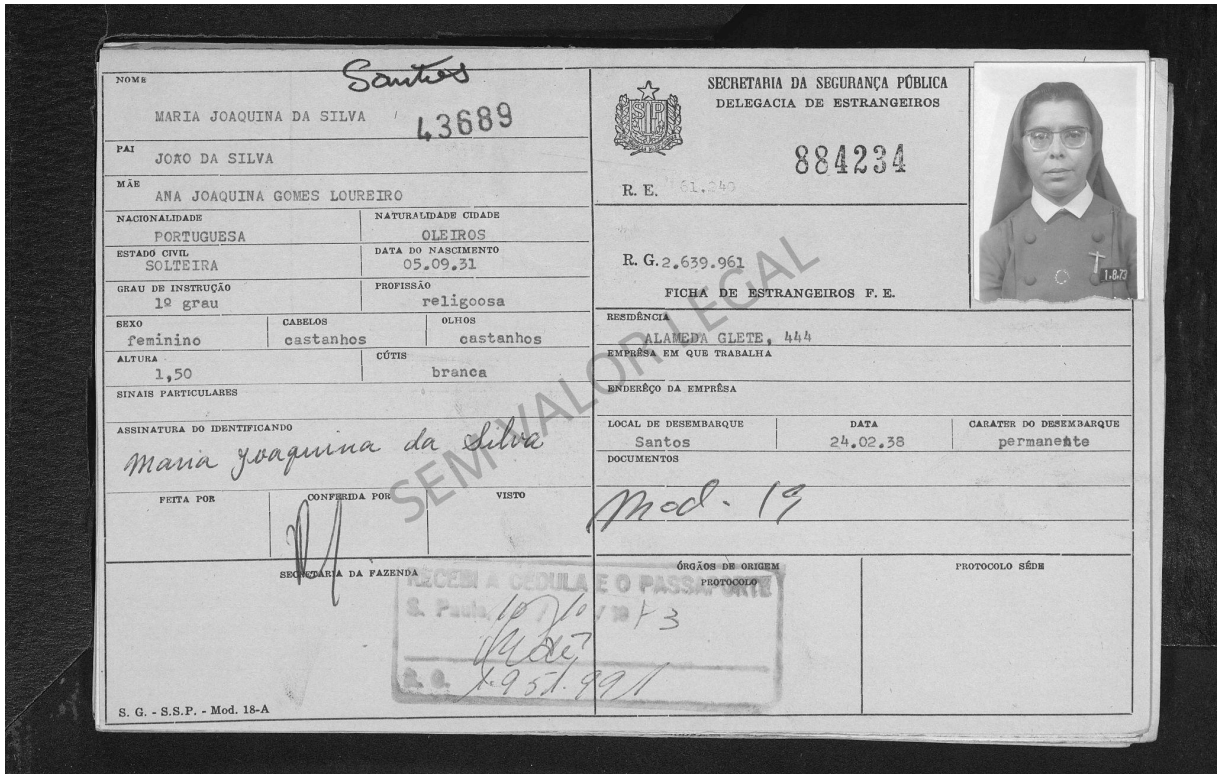 Santos
NOME
MARIA JOAQUINA DA SILVA
43689
PAI
JOAO DA SILVA
MÃE
ANA JOAQUINA GOMES LOUREIRO
NACIONALIDADE
PORTUGUESA
NATURALIDADE CIDADE
OLEIROS
ESTADO CIVIL
SOLTEIRA
DATA DO NASCIMENTO
05.09.31
GRAU DE INSTRUÇÃO
1º grau
PROFISSÃO
religoosa
SEXO
feminino
CABELOS
castanhos
OLHOS
castanhos
ALTURA
1,50
CÚTIS
branca
SINAIS PARTICULARES
ASSINATURA DO IDENTIFICANDO
Maria Joaquina da Silva
FEITA POR
CONFERIDA POR
VISTO
SECRETARIA DA FAZENDA
S. G. - S.S.P. - Mod. 18-A
SECRETARIA DA SEGURANÇA PÚBLICA
DELEGACIA DE ESTRANGEIROS
884234
R. E. 61.240
R. G. 2.639.961
FICHA DE ESTRANGEIROS F. E.
1.8.73
RESIDÊNCIA
ALAMEDA GLETE, 444
EMPRÊSA EM QUE TRABALHA
ENDERÊÇO DA EMPRÊSA
LOCAL DE DESEMBARQUE
Santos
DATA
24.02.38
CARATER DO DESEMBARQUE
permanente
DOCUMENTOS
Mod. 19
ÓRGÃOS DE ORIGEM
PROTOCOLO
PROTOCOLO SÉDE
RECEBI A CÉDULA E O PASSAPORTE
S. Paulo, 10/10/1973
R. G. 1.951.991
SEM VALOR LEGAL